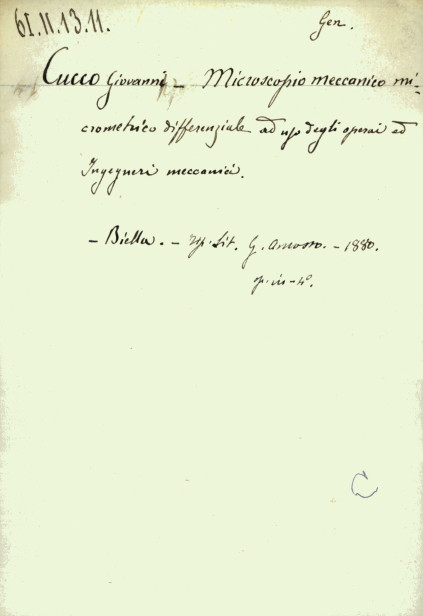 61.II.13.11.
Gen.
Cucco Giovanni – Microscopio meccanico mi-
crometrico differenziale ad uso degli operai ed
Ingegneri meccanici.
– Biella. – Tip. Lit. G. Amosso. – 1880.
op. in-4°.
C